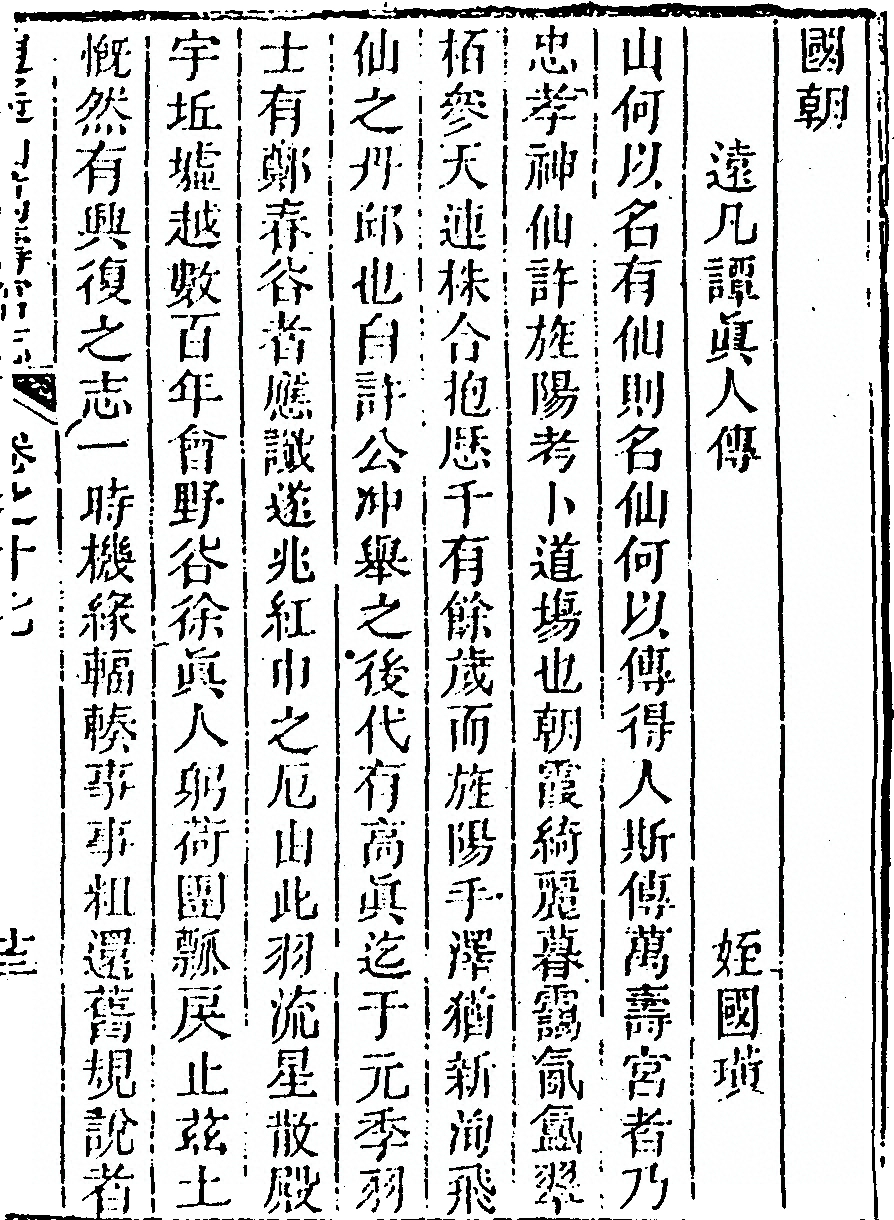 國朝
遠凡譚眞人傳 姪國璜
山何以名有仙則名仙何以傳得人斯傳萬壽宮者乃
忠孝神仙許旌陽考卜道塲也朝霞綺麗暮靄氤氳翠
栢參天連株合抱歷千有餘歲而旌陽手澤猶新洵飛
仙之丹邱也自許公冲舉之後代有高眞迄于元季羽
士有鄭春谷者應讖遂兆紅巾之厄由此羽流星散殿
宇坵墟越數百年會野谷徐眞人躬荷團瓢戾止茲土
慨然有興復之志一時機緣輻輳事事粗還舊規說者
卷之十七
十三